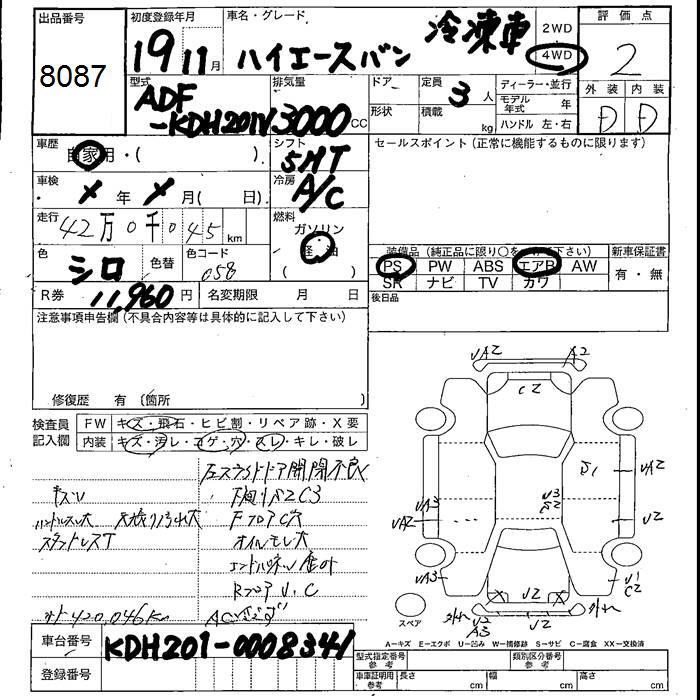 出品番号 初度登録年月 車名・グレード 冷凍車 2WD 評価点
8087 19 11月 ハイエースバン 4WD 2
型式 排気量 ドア 定員 ディーラー・並行 外装 内装
ADF 3人 モデル年式 年
-KDH201V 3000CC 形状 積載 kg ハンドル 左・右 D D
車歴 シフト セールスポイント(正常に機能するものに限ります)
自家用・( ) 5MT
車検 冷房
X年X月( 日) A/C
走行 燃料
42万0千045km ガソリン
色 色替 色コード 軽油 装備品(純正品に限り○をつけて下さい) 新車保証書
シロ 058 ( ) PS PW ABS エアB AW 有・無
SR ナビ TV カワ
R券 11,960円 名変期限 月 日 後日品
注意事項申告欄(不具合内容等は具体的に記入して下さい)
修復歴 有(箇所 )
検査員 FW キズ・飛石・ヒビ割・リペア跡・X要
記入欄 内装 キズ・汚レ・コゲ・穴・スレ・キレ・破レ
左スライドドア開閉不良
キズU
F廻りサビC3
ハンドルスレ大
FフロアC穴
オイルモレ大
RフロアU、C
メーター420,046km
VA2 A2
C2
VA2
VA3
VA2
U3
S2
U2
VA3
U1
C2
U2
U2
A3
外れ 外れ
スペア
A=キズ E=エクボ U=凹み W=補修跡 S=サビ C=腐食 XX=交換済
車台番号 KDH201-0008341
登録番号
型式指定番号 参考 類別区分番号 参考
車庫証明用 参考 長さ cm 幅 cm 高さ cm